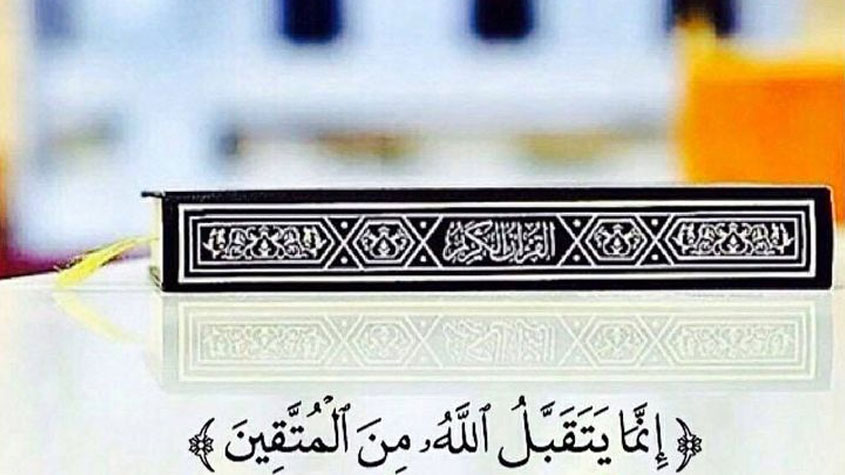 القرآن الكريم
﴿ إِنَّمَا يَتَقَبَّلُ ٱللَّهُ مِنَ ٱلْمُتَّقِينَ ﴾